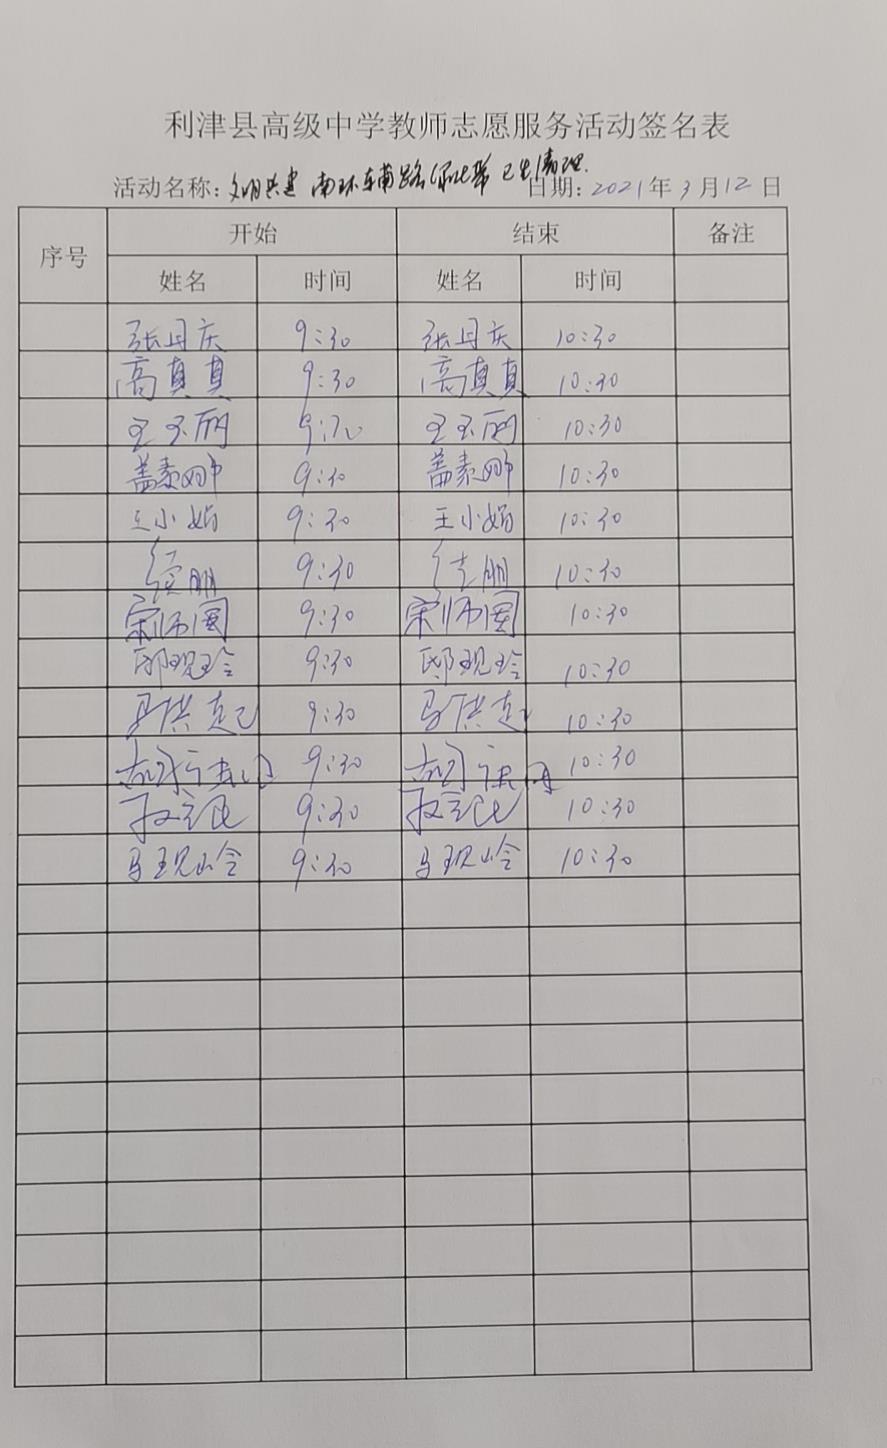 利津县高级中学教师志愿服务活动签名表
活动名称：文明共建 南环东辅路绿化带卫生清理 日期：2021年3月12日
序号 开始 结束 备注
姓名 时间 姓名 时间
张丹庆 9:30 张丹庆 10:30
高真真 9:30 高真真 10:30
王玉丽 9:30 王玉丽 10:30
盖素娜 9:30 盖素娜 10:30
王小娟 9:30 王小娟 10:30
9:30 10:30
宋师国 9:30 宋师国 10:30
邸现玲 9:30 邸现玲 10:30
马洪起 9:30 马洪起 10:30
9:30 10:30
9:30 10:30
马现岭 9:30 马现岭 10:30